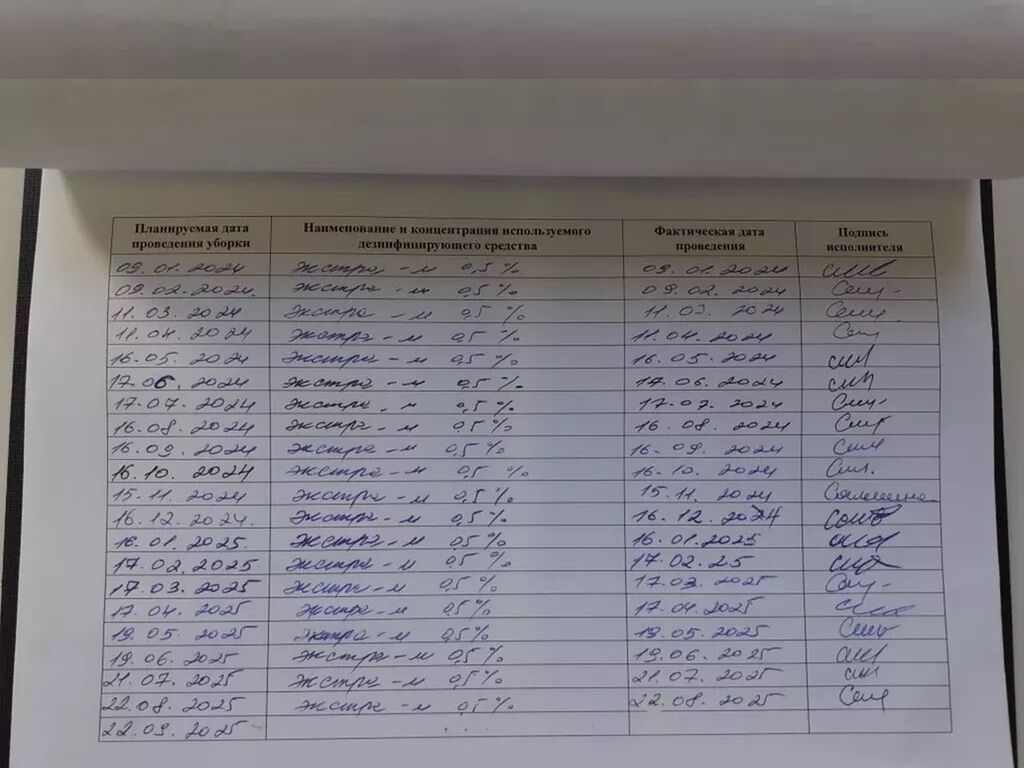 Планируемая дата проведения уборки Наименование и концентрация используемого дезинфицирующего средства Фактическая дата проведения Подпись исполнителя
09.01.2024 экстра-м 0,5% 09.01.2024
09.02.2024. экстра-м 0,5% 09.02.2024
11.03.2024 экстра-м 0,5% 11.03 2024
11.04.2024 экстра-м 0,5% 11.04.2024
16.05.2024 экстра-м 0,5% 16.05.2024
17.06.2024 экстра-м 0,5% 17.06.2024
17.07.2024 экстра-м 0,5% 17.07.2024
16.08.2024 экстра-м 0,5% 16.08.2024
16.09.2024 экстра-м 0,5% 16.09.2024
16.10.2024 экстра-м 0,5% 16.10.2024
15.11.2024 экстра-м 0,5% 15.11.2024
16.12.2024. экстра-м 0,5% 16.12.2024
16.01.2025. экстра-м 0,5% 16.01.2025
17.02.2025 экстра-м 0,5% 17.02.25
17.03.2025 экстра-м 0,5% 17.03.2025
17.04.2025 экстра-м 0,5% 17.04.2025
19.05.2025 экстра-м 0,5% 19.05.2025
19.06.2025 экстра-м 0,5% 19.06.2025
21.07.2025 экстра-м 0,5% 21.07.2025
22.08.2025 экстра-м 0,5% 22.08.2025
22.09.2025